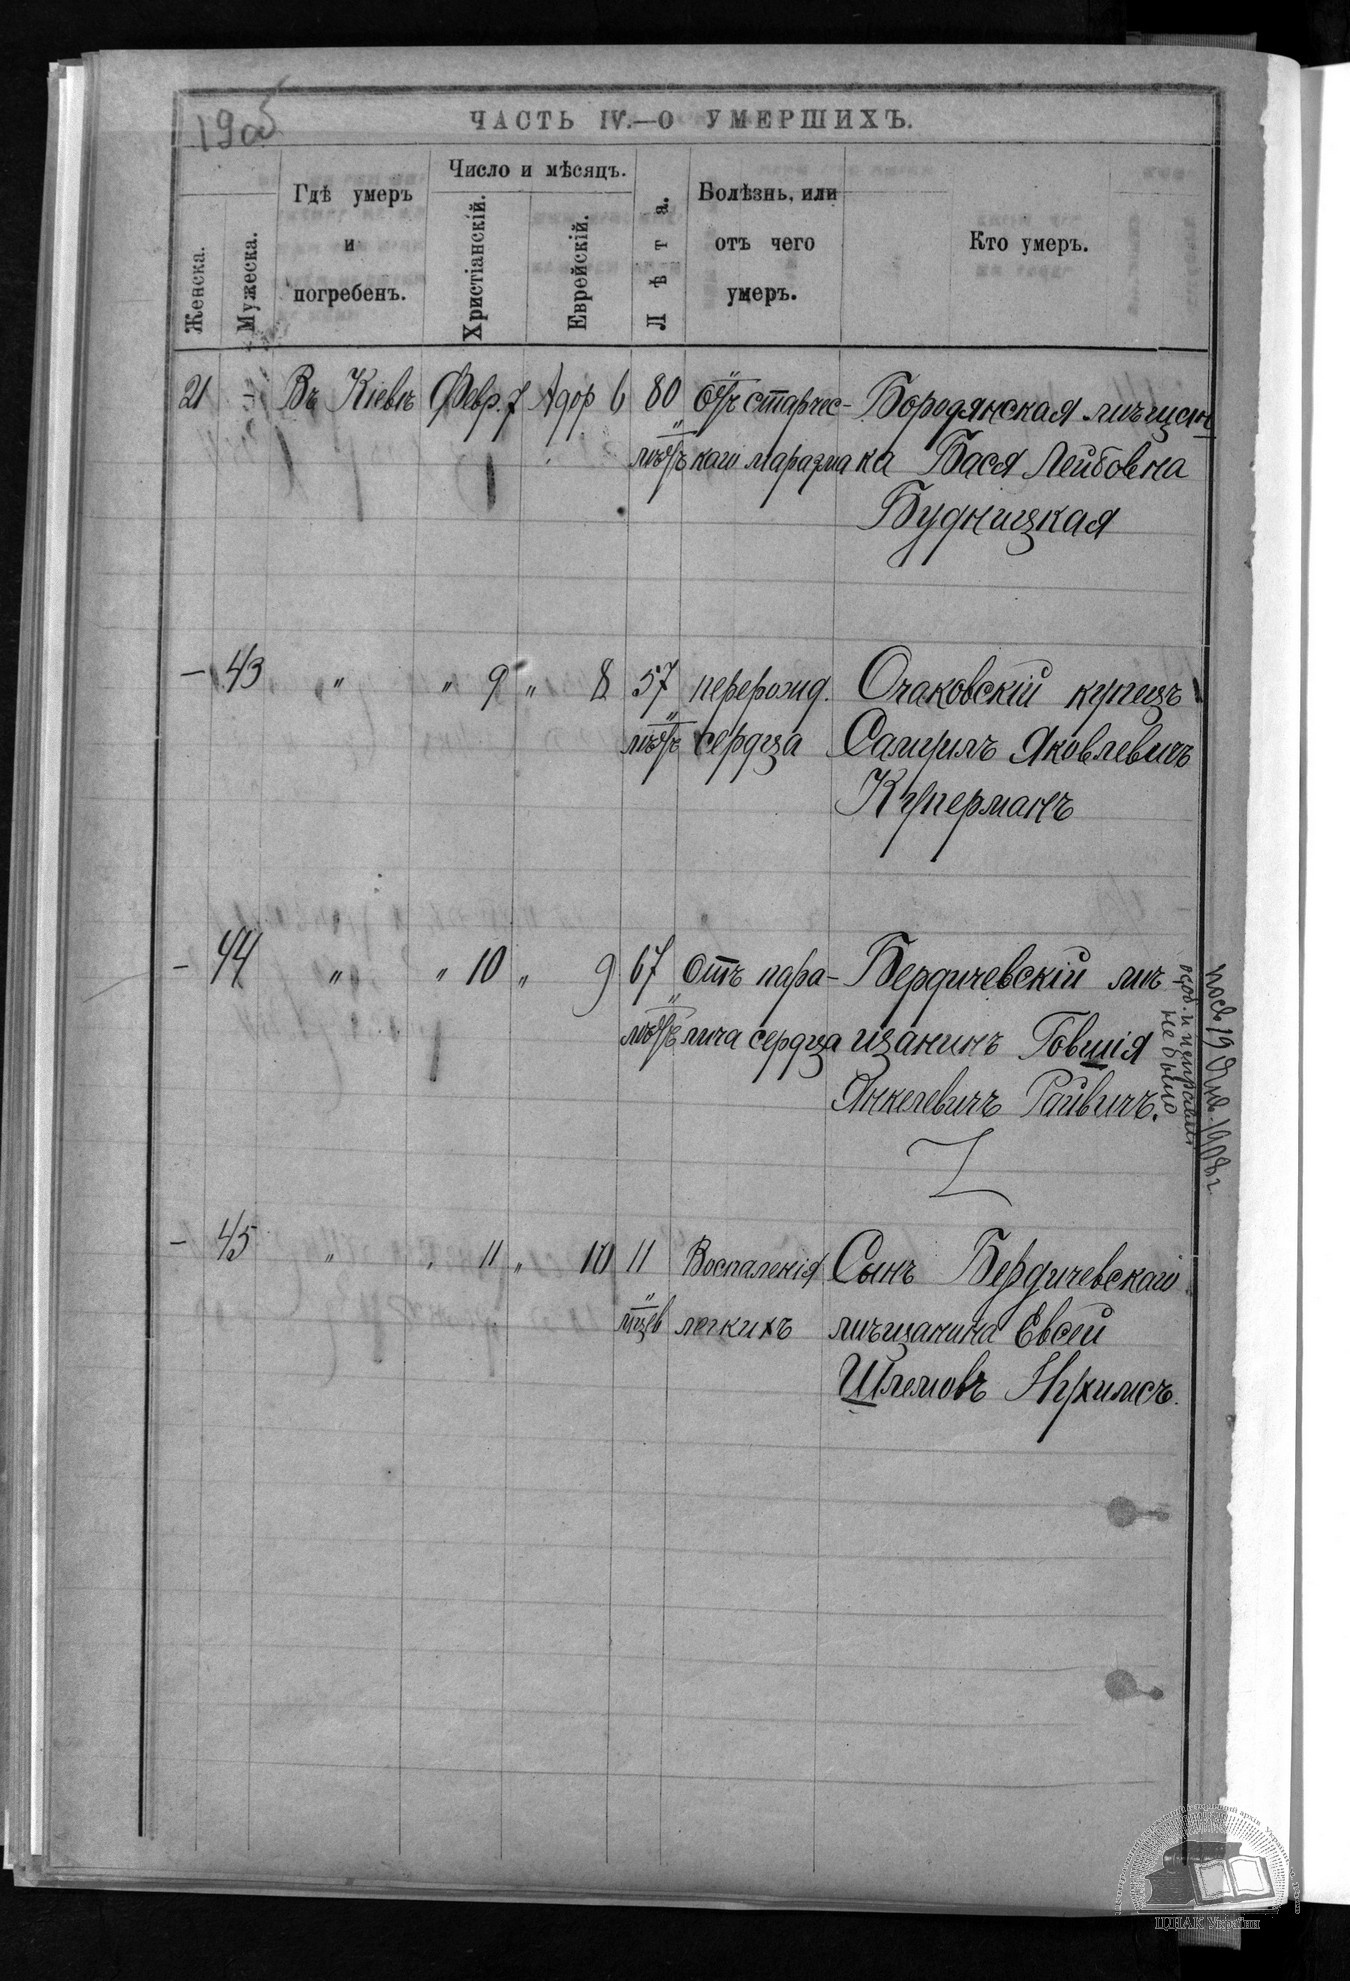 1905
ЧАСТЬ IV.—О УМЕРШИХЪ.
Женска.
Мужеска.
Гдѣ умеръ
и
погребенъ.
Число и мѣсяцъ.
Христіанскій.
Еврейскій.
Лѣта.
Болѣзнь, или
отъ чего
умеръ.
Кто умеръ.
21 Въ Кіевѣ Февр. 7 Адор 6 80 отъ старчес- Бородянская мѣщан
лѣтъ каго маразма ка Бася Лейбовна
Будницкая
— 43 " " 9 " 8 57 перерожд. Очаковскій купецъ
лѣтъ сердца Самуилъ Яковлевичъ
Куперманъ
— 44 " " 10 " 9 67 Отъ пара- Бердичевскій мѣ-
лѣтъ лича сердца щанинъ Говшія
Янкелевичъ Райвичъ.
— 45 " " 11 " 10 11 Воспаленія Сынъ Бердичевскаго
мцев легкихъ мѣщанина Евсей
Шлемовъ Нухимсъ.
19 Янв. 1908 г.
не было
ЦДІАК України